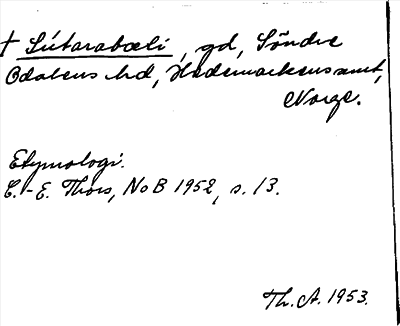 † Sútarabœli, gd, Söndre
Odalens hd, Hedemarkens amt,
Norge.
Etymologi.
C.-E. Thors, NoB 1952, s. 13.
Th. A. 1953.